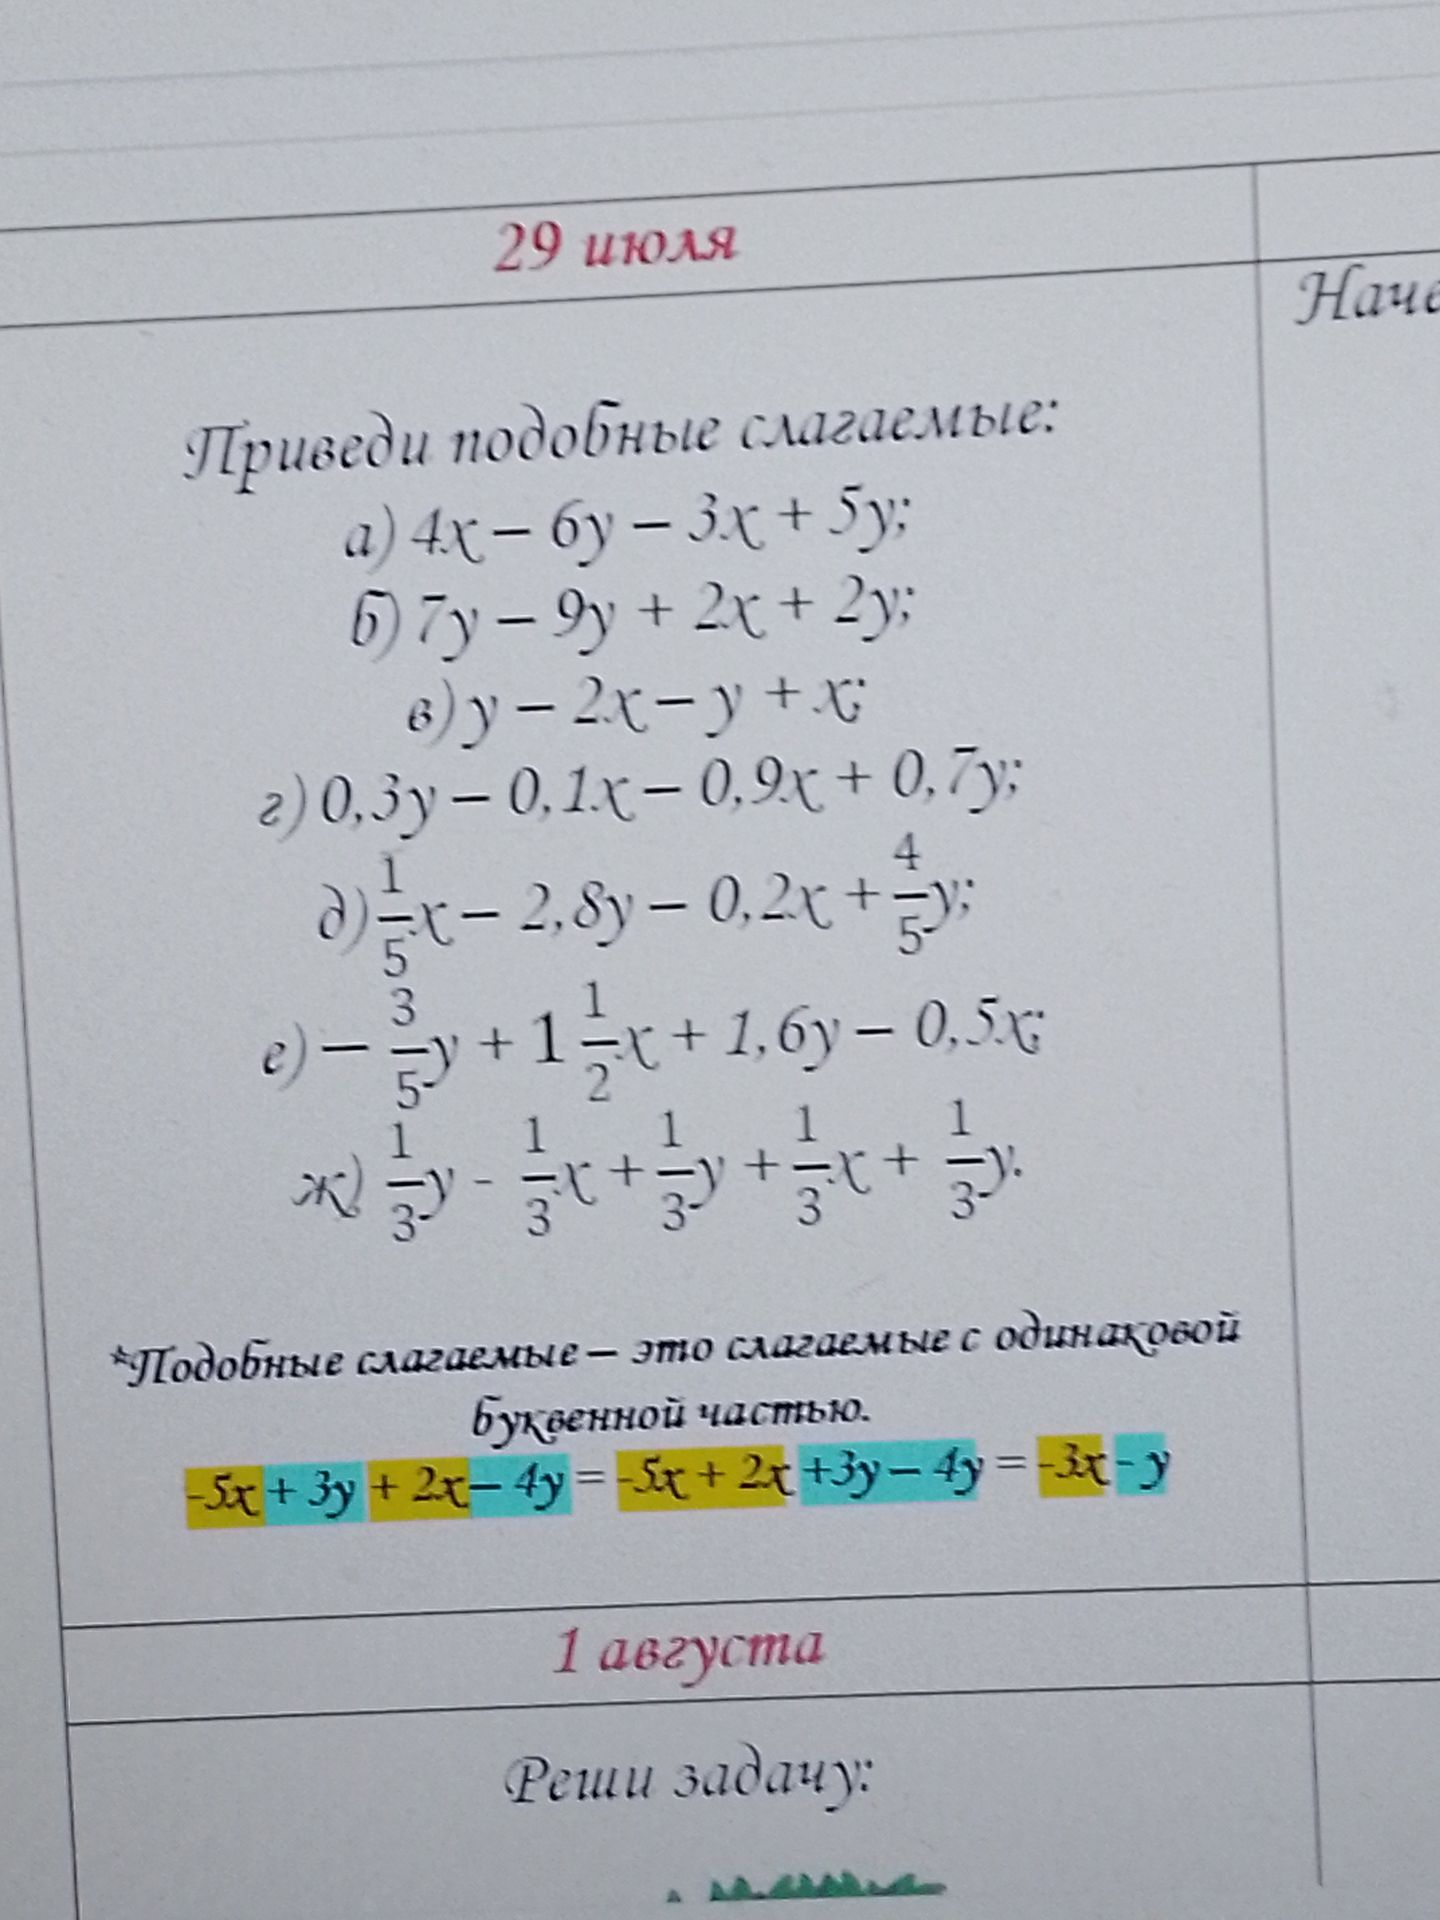 29 июля
Наче
Приведи подобные слагаемые:
а) 4x – 6y – 3x + 5y;
б) 7y – 9y + 2x + 2y;
в) y – 2x – y + x;
г) 0,3y – 0,1x – 0,9x + 0,7y;
д) 1/5 x – 2,8y – 0,2x + 4/5 y;
е) – 3/5 y + 1 1/2 x + 1,6y – 0,5x;
ж) 1/3 y - 1/3 x + 1/3 y + 1/3 x + 1/3 y.
*Подобные слагаемые – это слагаемые с одинаковой
буквенной частью.
-5x + 3y + 2x – 4y = -5x + 2x +3y – 4y = -3x - y
1 августа
Реши задачу: